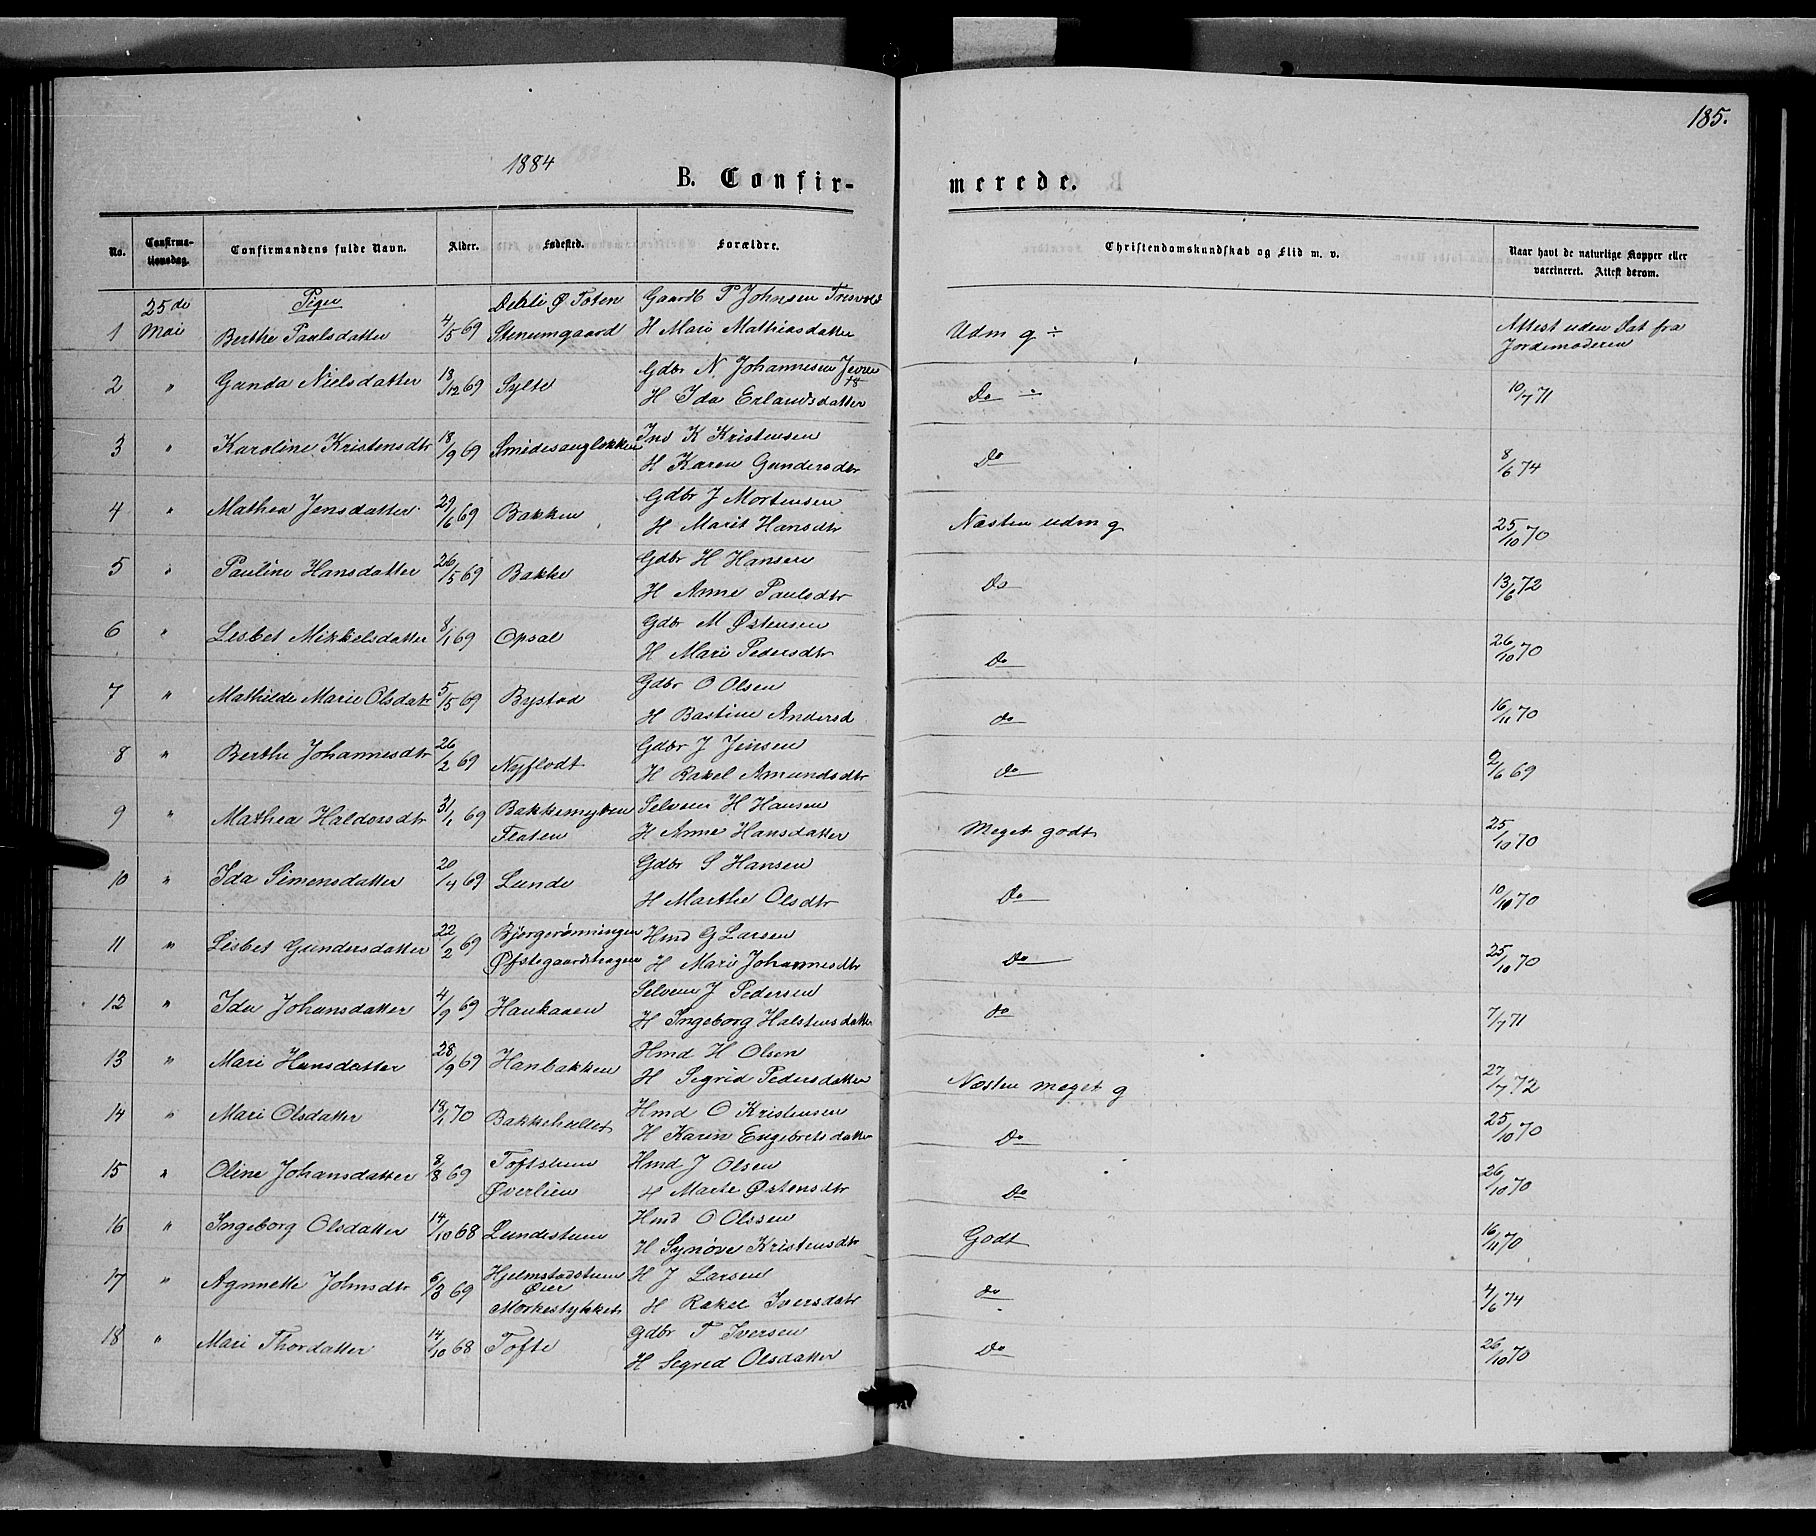 185.
1884
B. Confir-
merede.
No.
Confirma-
tionsdag.
Confirmandens fulde Navn.
Alder.
Fødested.
Forældre.
Christendomskundskab og Flid m. v.
Naar havt de naturlige Kopper eller
vaccineret. Attest derom.
25de Piger Ø Toten Gaardb P Johnsen
1 Mai Berthe Paulsdatter 4/5 69 Stenumgaard H Mari Mathiasdatter Udm g ÷ Attest uden Dat fra
Jordemoderen
2 " Ganda Nielsdatter 13/12 69 Sylte Gdbr N. Johannesen
H Ida Erlandsdatter Do ÷ 10/7 71
3 " Karoline Kristensdtr 18/9 69 Smidesangløkken Ind K Kristensen
H Karen Gundersdtr Do 8/6 74
4 " Mathea Jensdatter 29/6 69 Bakken Gdbr J Mortensen
H Marit Hansdtr Næsten udm g 25/10 70
5 " Pauline Hansdatter 26/5 69 Bakke Gdbr H Hansen
H Anne Paulsdtr Do 13/6 72
6 " Lisbet Mikkelsdatter 8/1 69 Opsal Gdbr M Østensen
H Mari Pedersdtr Do 26/10 70
7 " Mathilde Marie Olsdatr 5/5 69 Bystad Gdbr O Olsen
H Bastine Andersd do 16/11 70
8 " Berthe Johannesdtr 26/2 69 Nyflodt Gdbr J Jensen
H Rakel Amundsdtr do 2/6 69
9 " Mathea Haldorsdtr 31/1 69 Bakkemyken Selveier H Hansen
Flaten H Anne Hansdatter Meget godt 25/10 70
10 " Ida Simensdatter 20/4 69 Lunde Gdbr S Hansen
H Marthe Olsdtr Do 10/10 70
11 " Lisbet Gundersdatter 22/2 69 Bjørgerønningen Hmd G Larsen
Øfstegaardshagen H Mari Johannesdtr Do 25/10 70
12 " Ida Johansdatter 4/9 69 Haukaaen Selveier J Pedersen
H Ingeborg Halstensdatter do 7/7 71
13 " Mari Hansdatter 28/9 69 Hanbakken Hmd H Olsen
H Sigrid Pedersdatter Næsten meget g 27/7 72
14 " Mari Olsdatter 18/1 70 Bakkeholtet Hmd O Kristensen
H Karin Engebretsdatter Do 25/10 70
15 " Oline Johansdatter 8/8 69 Toftstuen Hmd J Olsen
Øverlien H Marte Østensdtr Do 26/10 70
16 " Ingeborg Olsdatter 14/10 68 Lundestuen Hmd O Olssen
H Synøve Kristensdtr Godt 16/11 70
17 " Agnnette Johnsdtr 6/3 69 Hjelmstadstuen H J Larsen
Øier
Mørkestykket H Rakel Iversdatr do 4/6 74
18 " Mari Thordatter 14/10 68 Tofte Gdbr T Iversen
H Segred Olsdatter Do 26/10 70